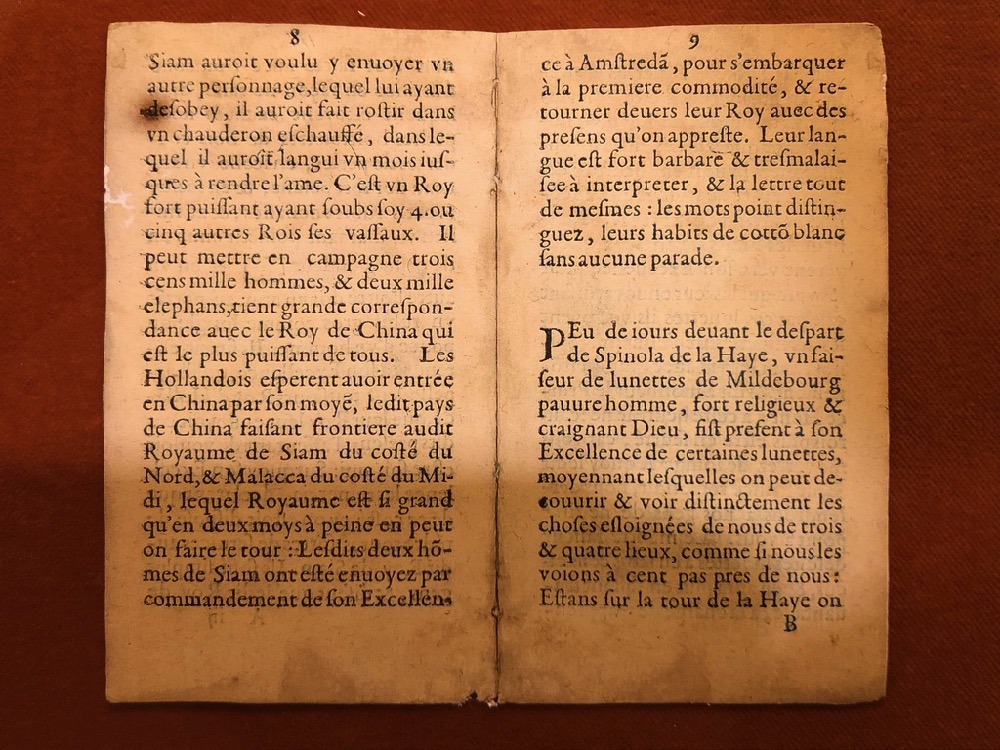 8
Siam auroit voulu y enuoyer vn
autre perſonnage,lequel lui ayant
deſobey, il auroit fait roſtir dans
vn chauderon eſchauffé, dans le-
quel il auroit langui vn mois iuſ-
ques à rendre l'ame. C'eſt vn Roy
fort puiſſant ayant ſoubs ſoy 4.ou
cinq autres Rois ſes vaſſaux. Il
peut mettre en campagne trois
cens mille hommes, & deux mille
elephans,tient grande correſpon-
dance auec le Roy de China qui
eſt le plus puiſſant de tous. Les
Hollandois eſperent auoir entrée
en China par ſon moyẽ, ledit pays
de China faiſant frontiere audit
Royaume de Siam du coſté du
Nord,& Malacca du coſté du Mi-
di, lequel Royaume eſt ſi grand
qu'en deux moys à peine en peut
on faire le tour : Leſdits deux hõ-
mes de Siam ont eſté enuoyez par
commandement de ſon Excellen-
9
ce à Amſtredã, pour s'embarquer
à la premiere commodité, & re-
tourner deuers leur Roy auec des
preſens qu'on appreſte. Leur lan-
gue eſt fort barbare & treſmalai-
ſee à interpreter, & la lettre tout
de meſmes : les mots point diſtin-
guez, leurs habits de cottõ blanc
ſans aucune parade.
PEu de iours deuant le deſpart
de Spinola de la Haye, vn fai-
ſeur de lunettes de Mildebourg
pauure homme, fort religieux &
craignant Dieu, fiſt preſent à ſon
Excellence de certaines lunettes,
moyennant leſquelles on peut de-
couurir & voir diſtinctement les
choſes eſloignées de nous de trois
& quatre lieux, comme ſi nous les
voions à cent pas pres de nous:
Eſtans ſur la tour de la Haye on
B